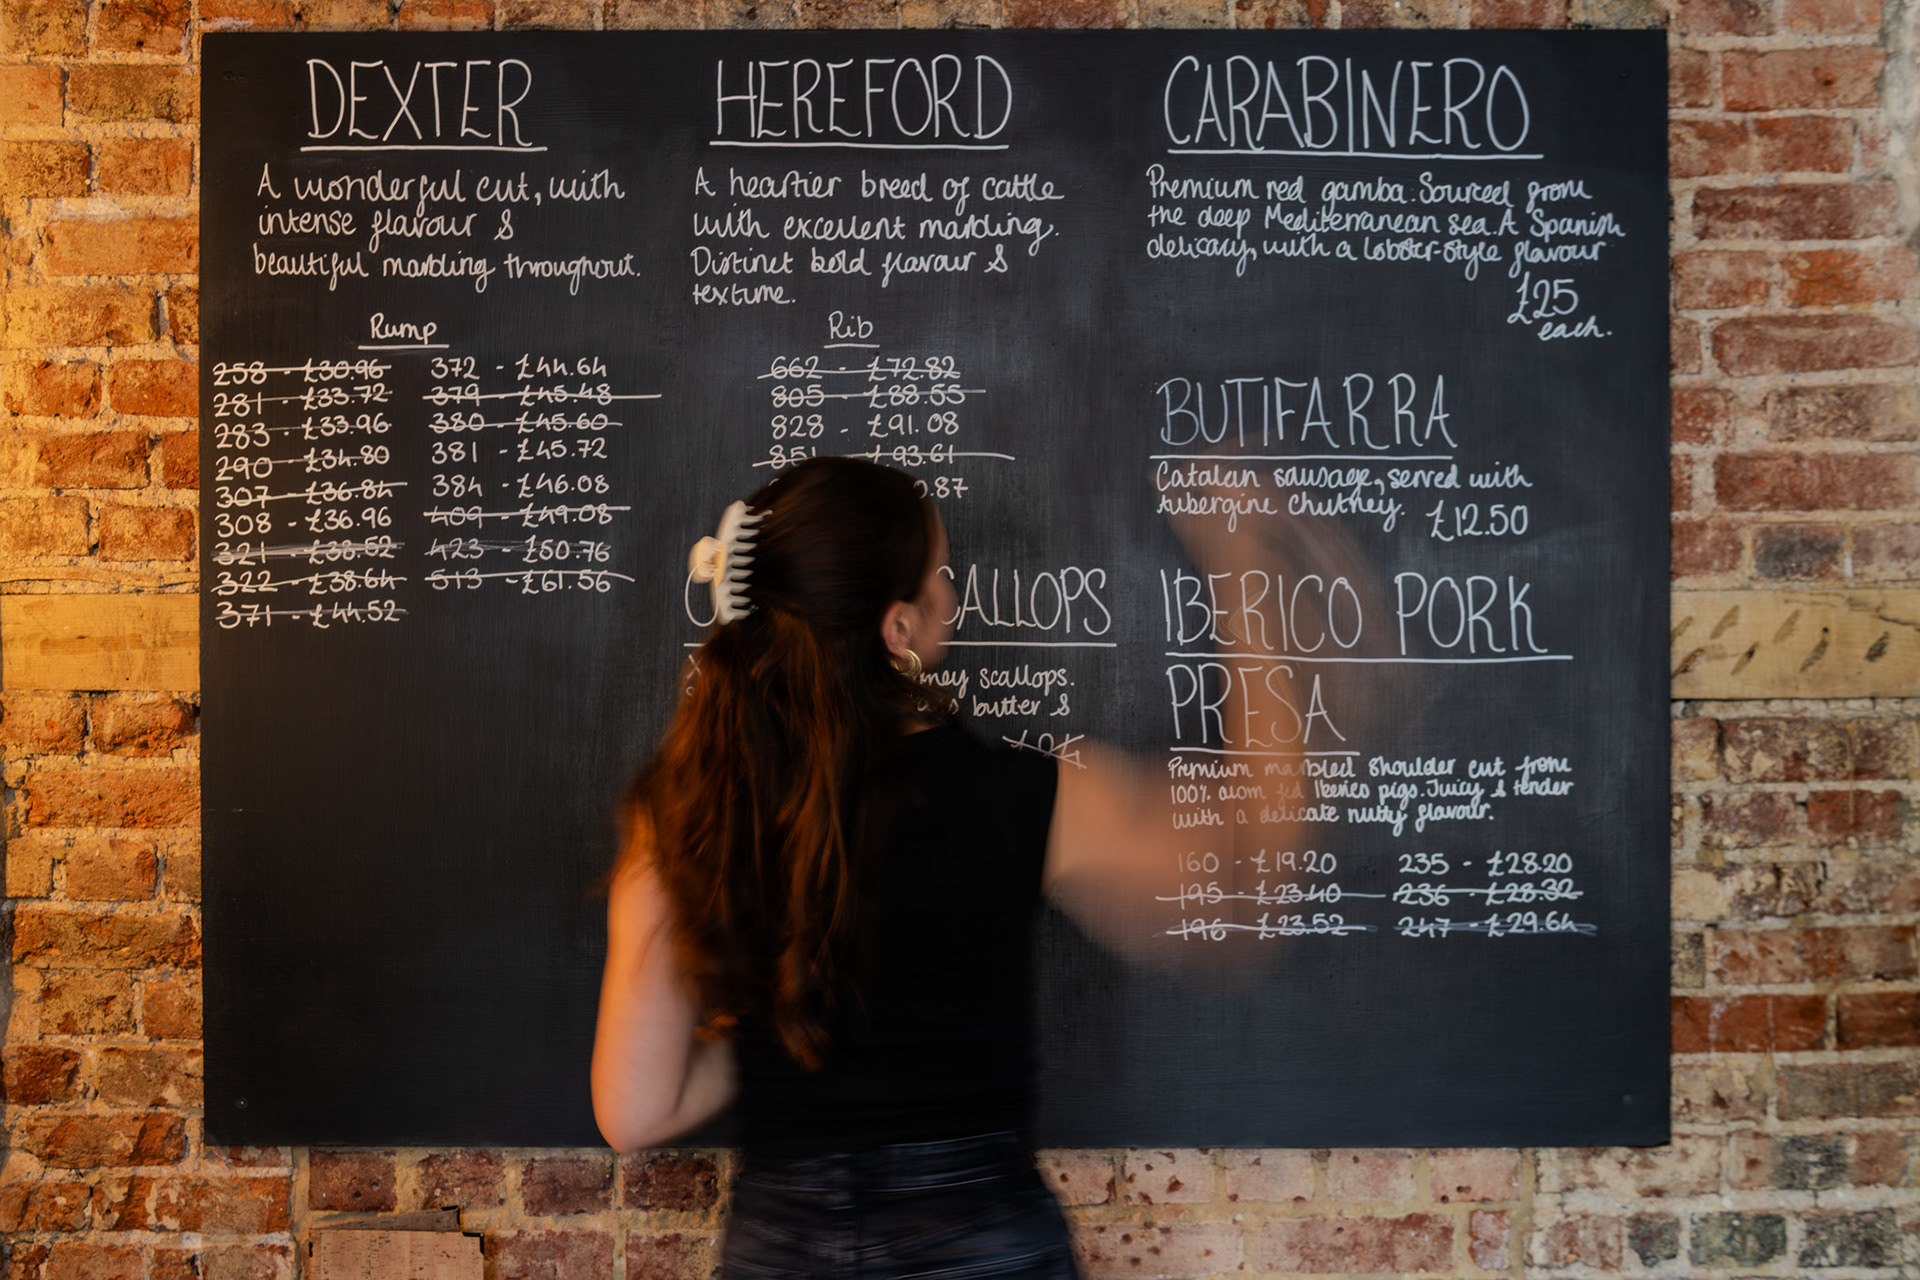 DEXTER
A wonderful cut, with
intense flavour &
beautiful marbling throughout.
Rump
258 - £30.96
281 - £33.72
283 - £33.96
290 - £34.80
307 - £36.84
308 - £36.96
321 - £38.52
322 - £38.64
371 - £44.52
372 - £44.64
379 - £45.48
380 - £45.60
381 - £45.72
384 - £46.08
409 - £49.08
423 - £50.76
513 - £61.56
HEREFORD
A heartier breed of cattle
with excellent marbling.
Distinct bold flavour &
texture.
Rib
662 - £72.82
805 - £88.55
828 - £91.08
851 £93.61
.87
SCALLOPS
scallops.
butter &
CARABINERO
Premium red gamba. Sourced from
the deep Mediterranean sea. A Spanish
delicacy, with a lobster-style flavour
£25
each.
BUTIFARRA
Catalan sausage, served with
Aubergine Chutney. £12.50
IBERICO PORK
PRESA
Premium marbled shoulder cut from
100% acorn fed Iberico pigs. Juicy & tender
with a delicate nutty flavour.
160 - £19.20
195 - £23.40
196 - £23.52
235 - £28.20
236 - £28.32
247 - £29.64